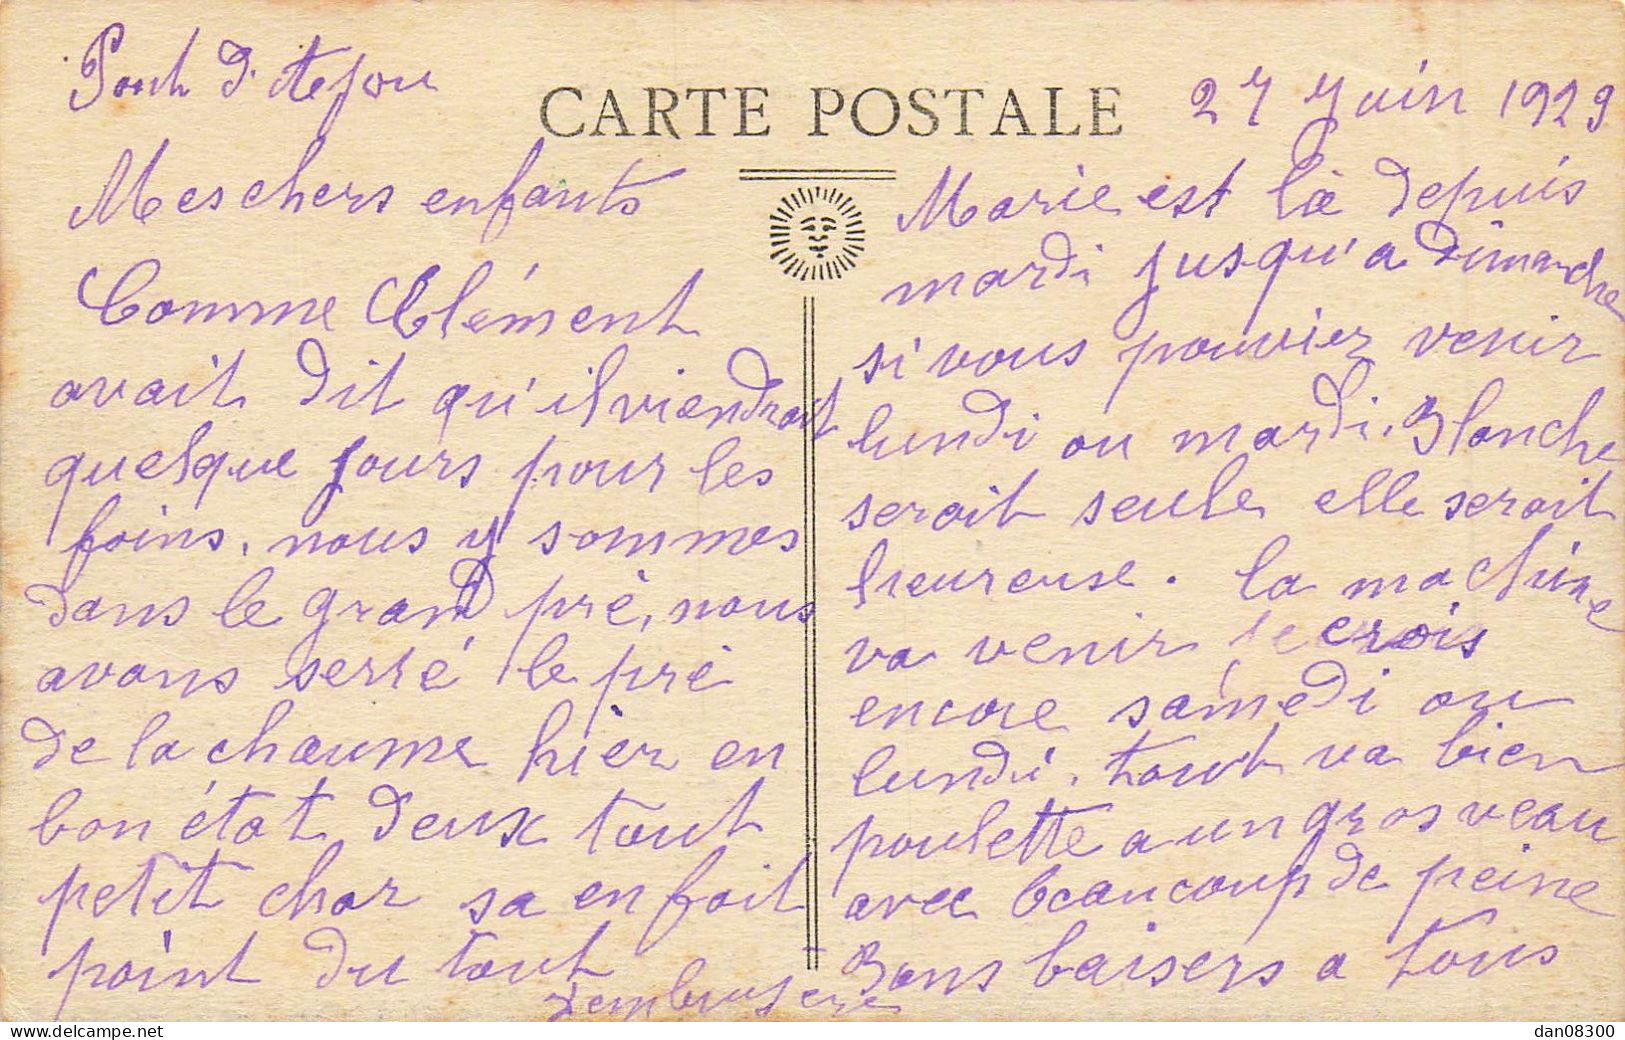 CARTE POSTALE
27 Juin 1929
Mes chers enfants
Comme Clément
avait dit qu'il viendrait
quelque jours pour les
foins, nous y sommes
dans le grand pré, nous
avons serré le pré
de la chaume hier en
bon état, deux tout
petit char sa en fait
point du tout
Marie est là depuis
mardi jusqu'a dimanche
si vous pouviez venir
lundi ou mardi, Blanche
serait seule elle serait
heureuse. la machine
va venir je crois
encore samedi ou
lundi, tout va bien
poulette a un gros veau
avec beaucoup de peine
Bons baisers a tous
delcampe.net
dan08300